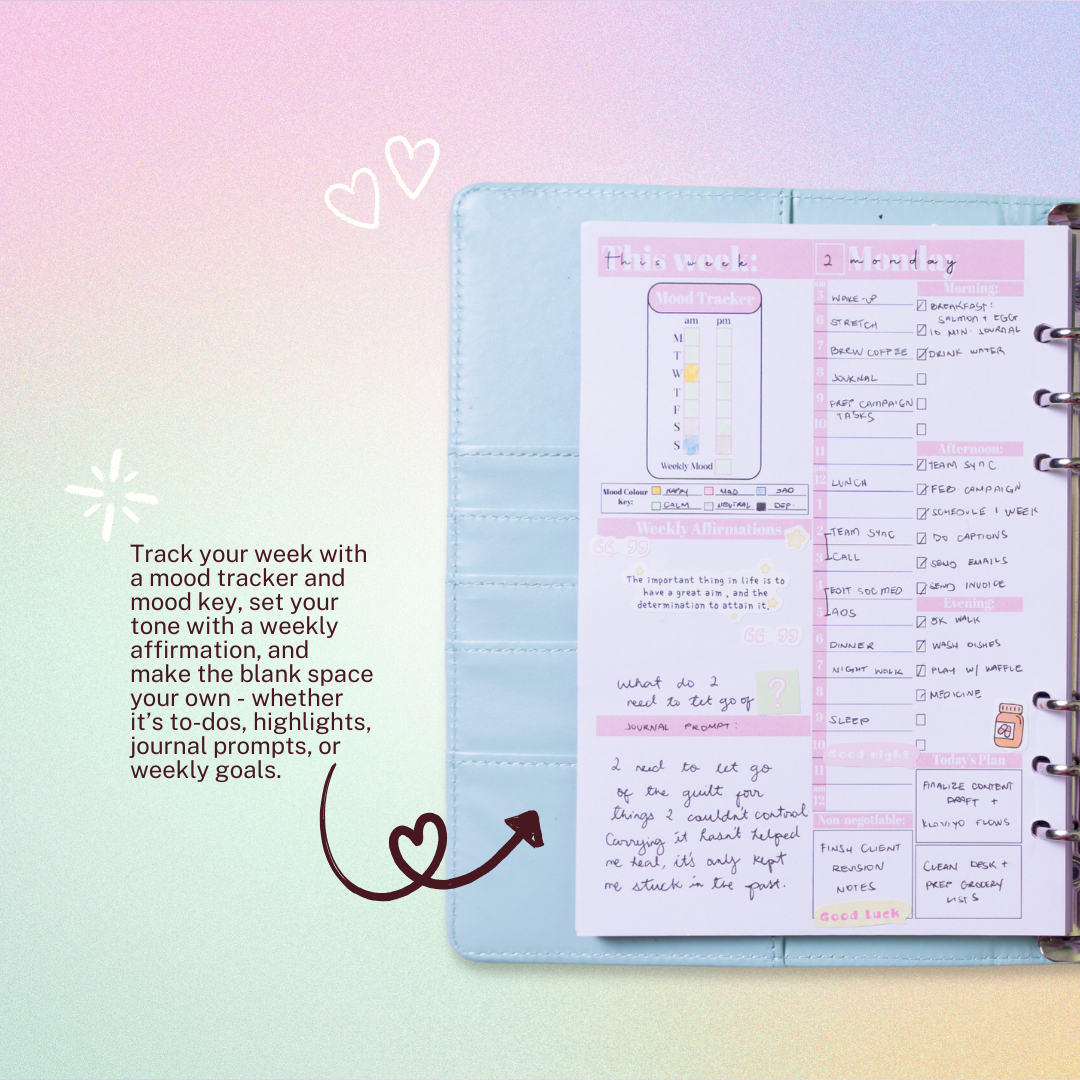 Track your week with
a mood tracker and
mood key, set your
tone with a weekly
affirmation, and
make the blank space
your own - whether
it's to-dos, highlights,
journal prompts, or
weekly goals.
This week:
This week
Mood Tracker
am pm
M
T
W
T
F
S
S
Weekly Mood
Mood Colour
Key:
HAPPY MAD SAD
CALM NEUTRAL DEP.
Weekly Affirmations
The important thing in life is to
have a great aim, and the
determination to attain it.
what do I
need to let go of
?
JOURNAL PROMPT:
I need to let go
of the guilt for
things I couldn't control
Carrying it hasn't helped
me heal, it's only kept
me stuck in the past.
2 Monday
monday
am
5 WAKE-UP
6 STRETCH
7 BREW COFFEE
8 JOURNAL
9 PREP CAMPAIGN
TASKS
10
11
12 LUNCH
1
2 TEAM SYNC
3 CALL
4 EDIT SOC MED
5 ADS
6 DINNER
7 NIGHT WALK
8
9 SLEEP
10 Good night
11
am
12
Non-negotiable:
FINSH CLIENT
REVISION
NOTES
Good Luck
Morning:
BREAKFAST:
SALMON + EGG
10 MIN. JOURNAL
DRINK WATER
Afternoon:
TEAM SYNC
FEB CAMPAIGN
SCHEDULE 1 WEEK
DO CAPTIONS
SEND EMAILS
SEND INVOICE
Evening:
5K WALK
WASH DISHES
PLAY W/ WAFFLE
MEDICINE
Today's Plan
FINALIZE CONTENT
DRAFT +
KLAVIYO FLOWS
CLEAN DESK +
PREP GROCERY
LISTS